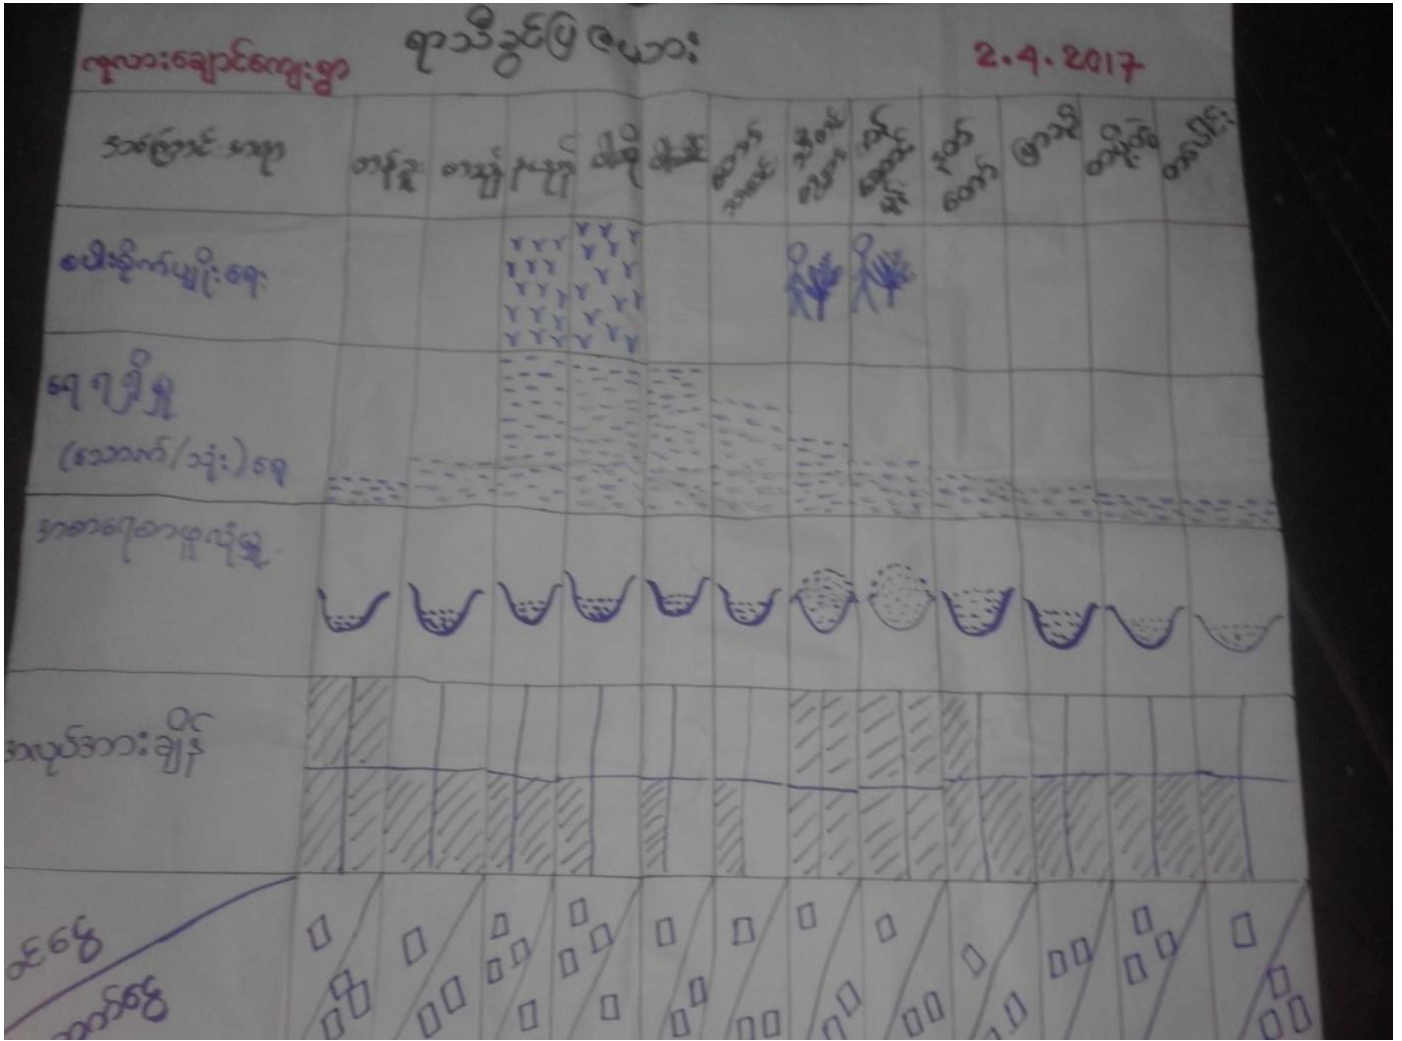 ရာသီခွင်ပြ ဇယား
ကုလားချောင်ကျေးရွာ
2.4.2017
အကြောင်းအရာ တန်ခူး ကဆုန် နယုန် ဝါဆို ဝါခေါင် တော်သလင်း သီတင်းကျွတ် တန်ဆောင်မုန်း နတ်တော် ပြာသို တပို့တွဲ တပေါင်း
စိုက်ပျိုးရေး
ရေရရှိမှု
(သောက်/သုံး)ရေ
အစားရေစာဖူလုံမှု
အလုပ်အားချိန်
ဝင်ငွေ
ထွက်ငွေ